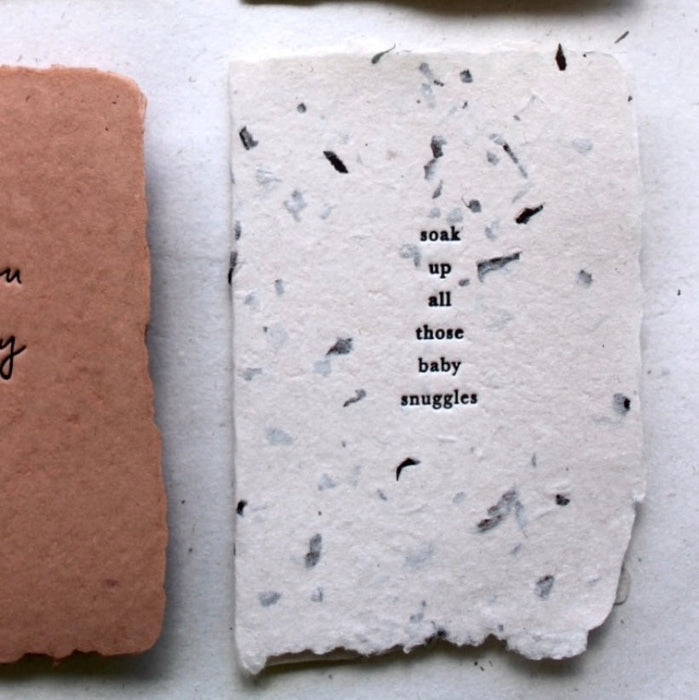 soak
up
all
those
baby
snuggles